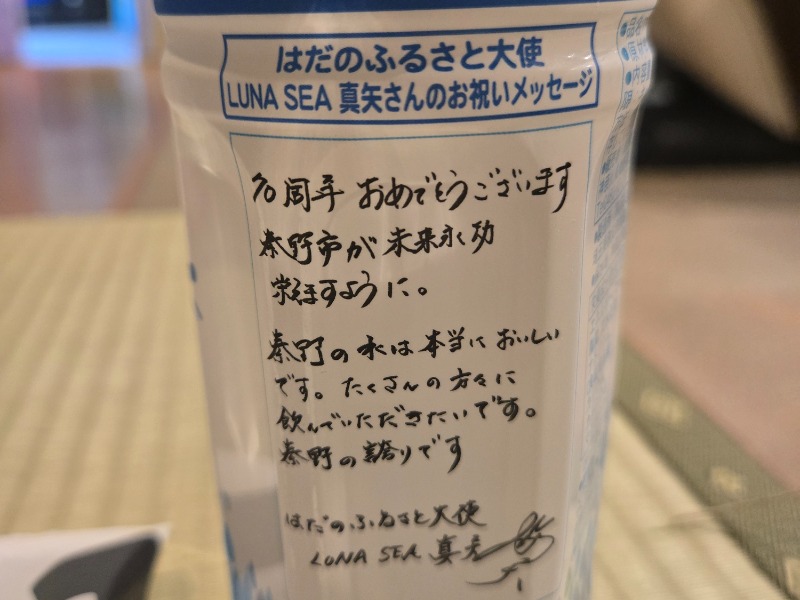 はだのふるさと大使
LUNA SEA 真矢さんのお祝いメッセージ
70周年 おめでとうございます
秦野市が 未来永劫
栄えますように。
秦野の水は本当においしい
です。たくさんの方々に
飲んでいただきたいです。
秦野の誇りです
はだのふるさと大使
LUNA SEA 真矢